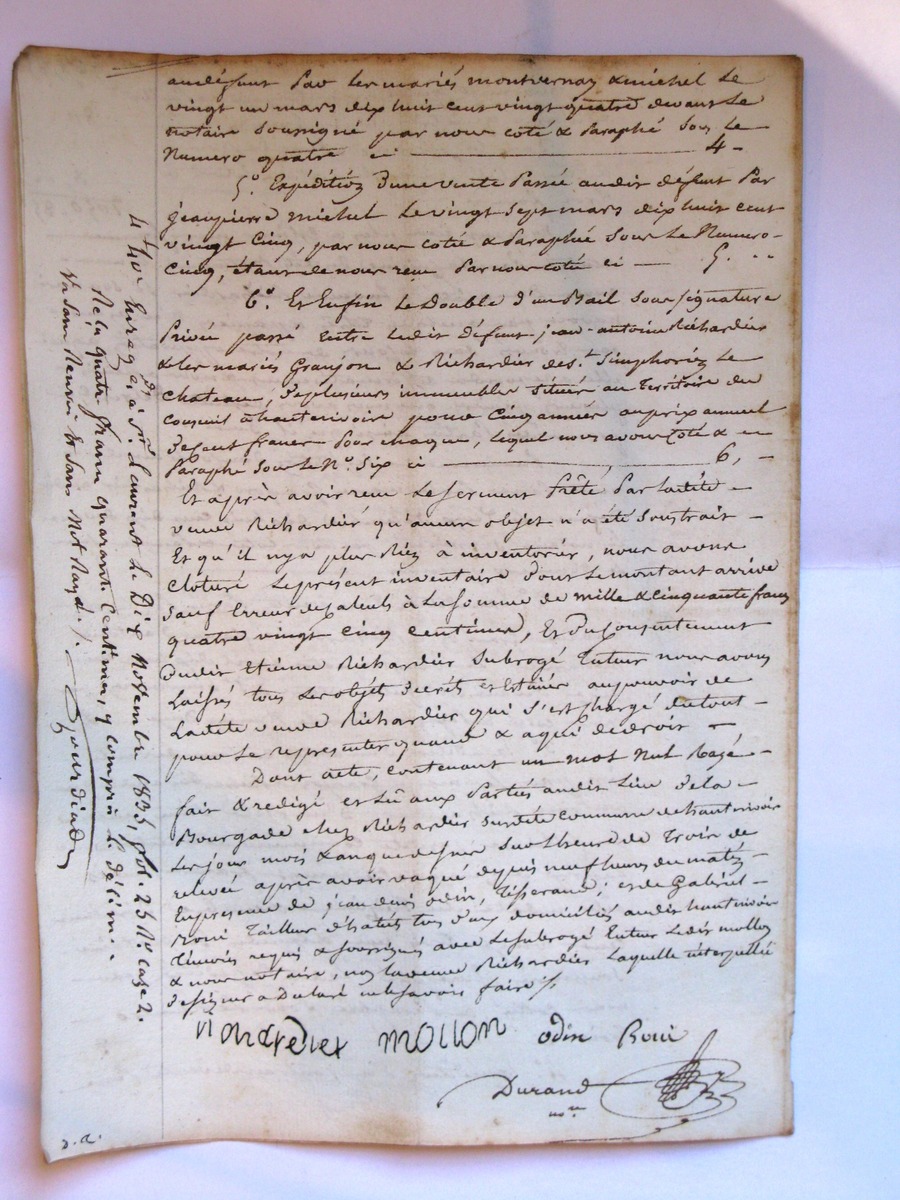 audéfunt Par les mariés montvernay & michel le
vingt un mars dix huit cent vingt quatre devant le
notaire soussigné par nous coté & Paraphé sous le
Numero quatre ci 4 -
5.° Expédition d'une vente Passée audit défunt Par
jeanpierre michel le vingt sept mars dix huit cent
vingt Cinq, par nous cotée & Paraphée sous le Numero
Cinq, étant de nous Par nous coté ci 5.
6.° Et Enfin le Double d'un Bail sous signature
Privée passé entre ledit défunt jean-antoine Richardier
& les mariés Granjon & Richardier de St. Simphorien le
chateau, de plusieurs immeubles situés au Territoire du
à hauterivoire pour Cinq années au prix annuel
de cent francs Pour chaque, lequel nous avons Coté &
Paraphé sous le No. Six ci 6, -
Et après avoir reçu le serment Prêté Par ladite
veuve Richardier qu'aucun objet n'a été soustrait
Et qu'il n'y a plus Rien à inventorier, nous avons
cloturé le présent inventaire dont le montant arrive
sauf Erreur de Calculs à la somme de mille & cinquante francs
quatre vingt cinq centimes, Et du Consentement
dudit Etienne Richardier subrogé Tuteur nous avons
Laissés tous les objets decrits et Estimés au pouvoir de
Ladite veuve Richardier qui s'est chargé du tout
pour le representer quand & a qui de droit
Dont acte, contenant un mot Nul Rayé
fait & redigé et lû aux Parties audit lieu de la
Bourgade chez Richardier susdite commune de hauterivoire
les jour mois & an que dessus sur l'heure de Trois de
relevée après avoir vaqué depuis neuf heures du matin
En presence de jean denis odin, Tisserand, et de Gabriel
Roué Tailleur d'habits tous deux domiciliés audit hauterivoire
Témoins requis & soussignés avec le subrogé Tuteur ledit mollon
& nous notaire, non la veuve Richardier Laquelle interpellée
de signer a Déclaré ne le savoir faire /.
mollon odin Roué
Durand
nre
4 Enreg.é à St. Laurent le Dix Novembre 1835, fol. 25 Ro. case 2.
Reçu quatre francs quarante centimes, y compris le décime.
Va Sans Renvoi Et Sans Mot Rayé./.
D. R.